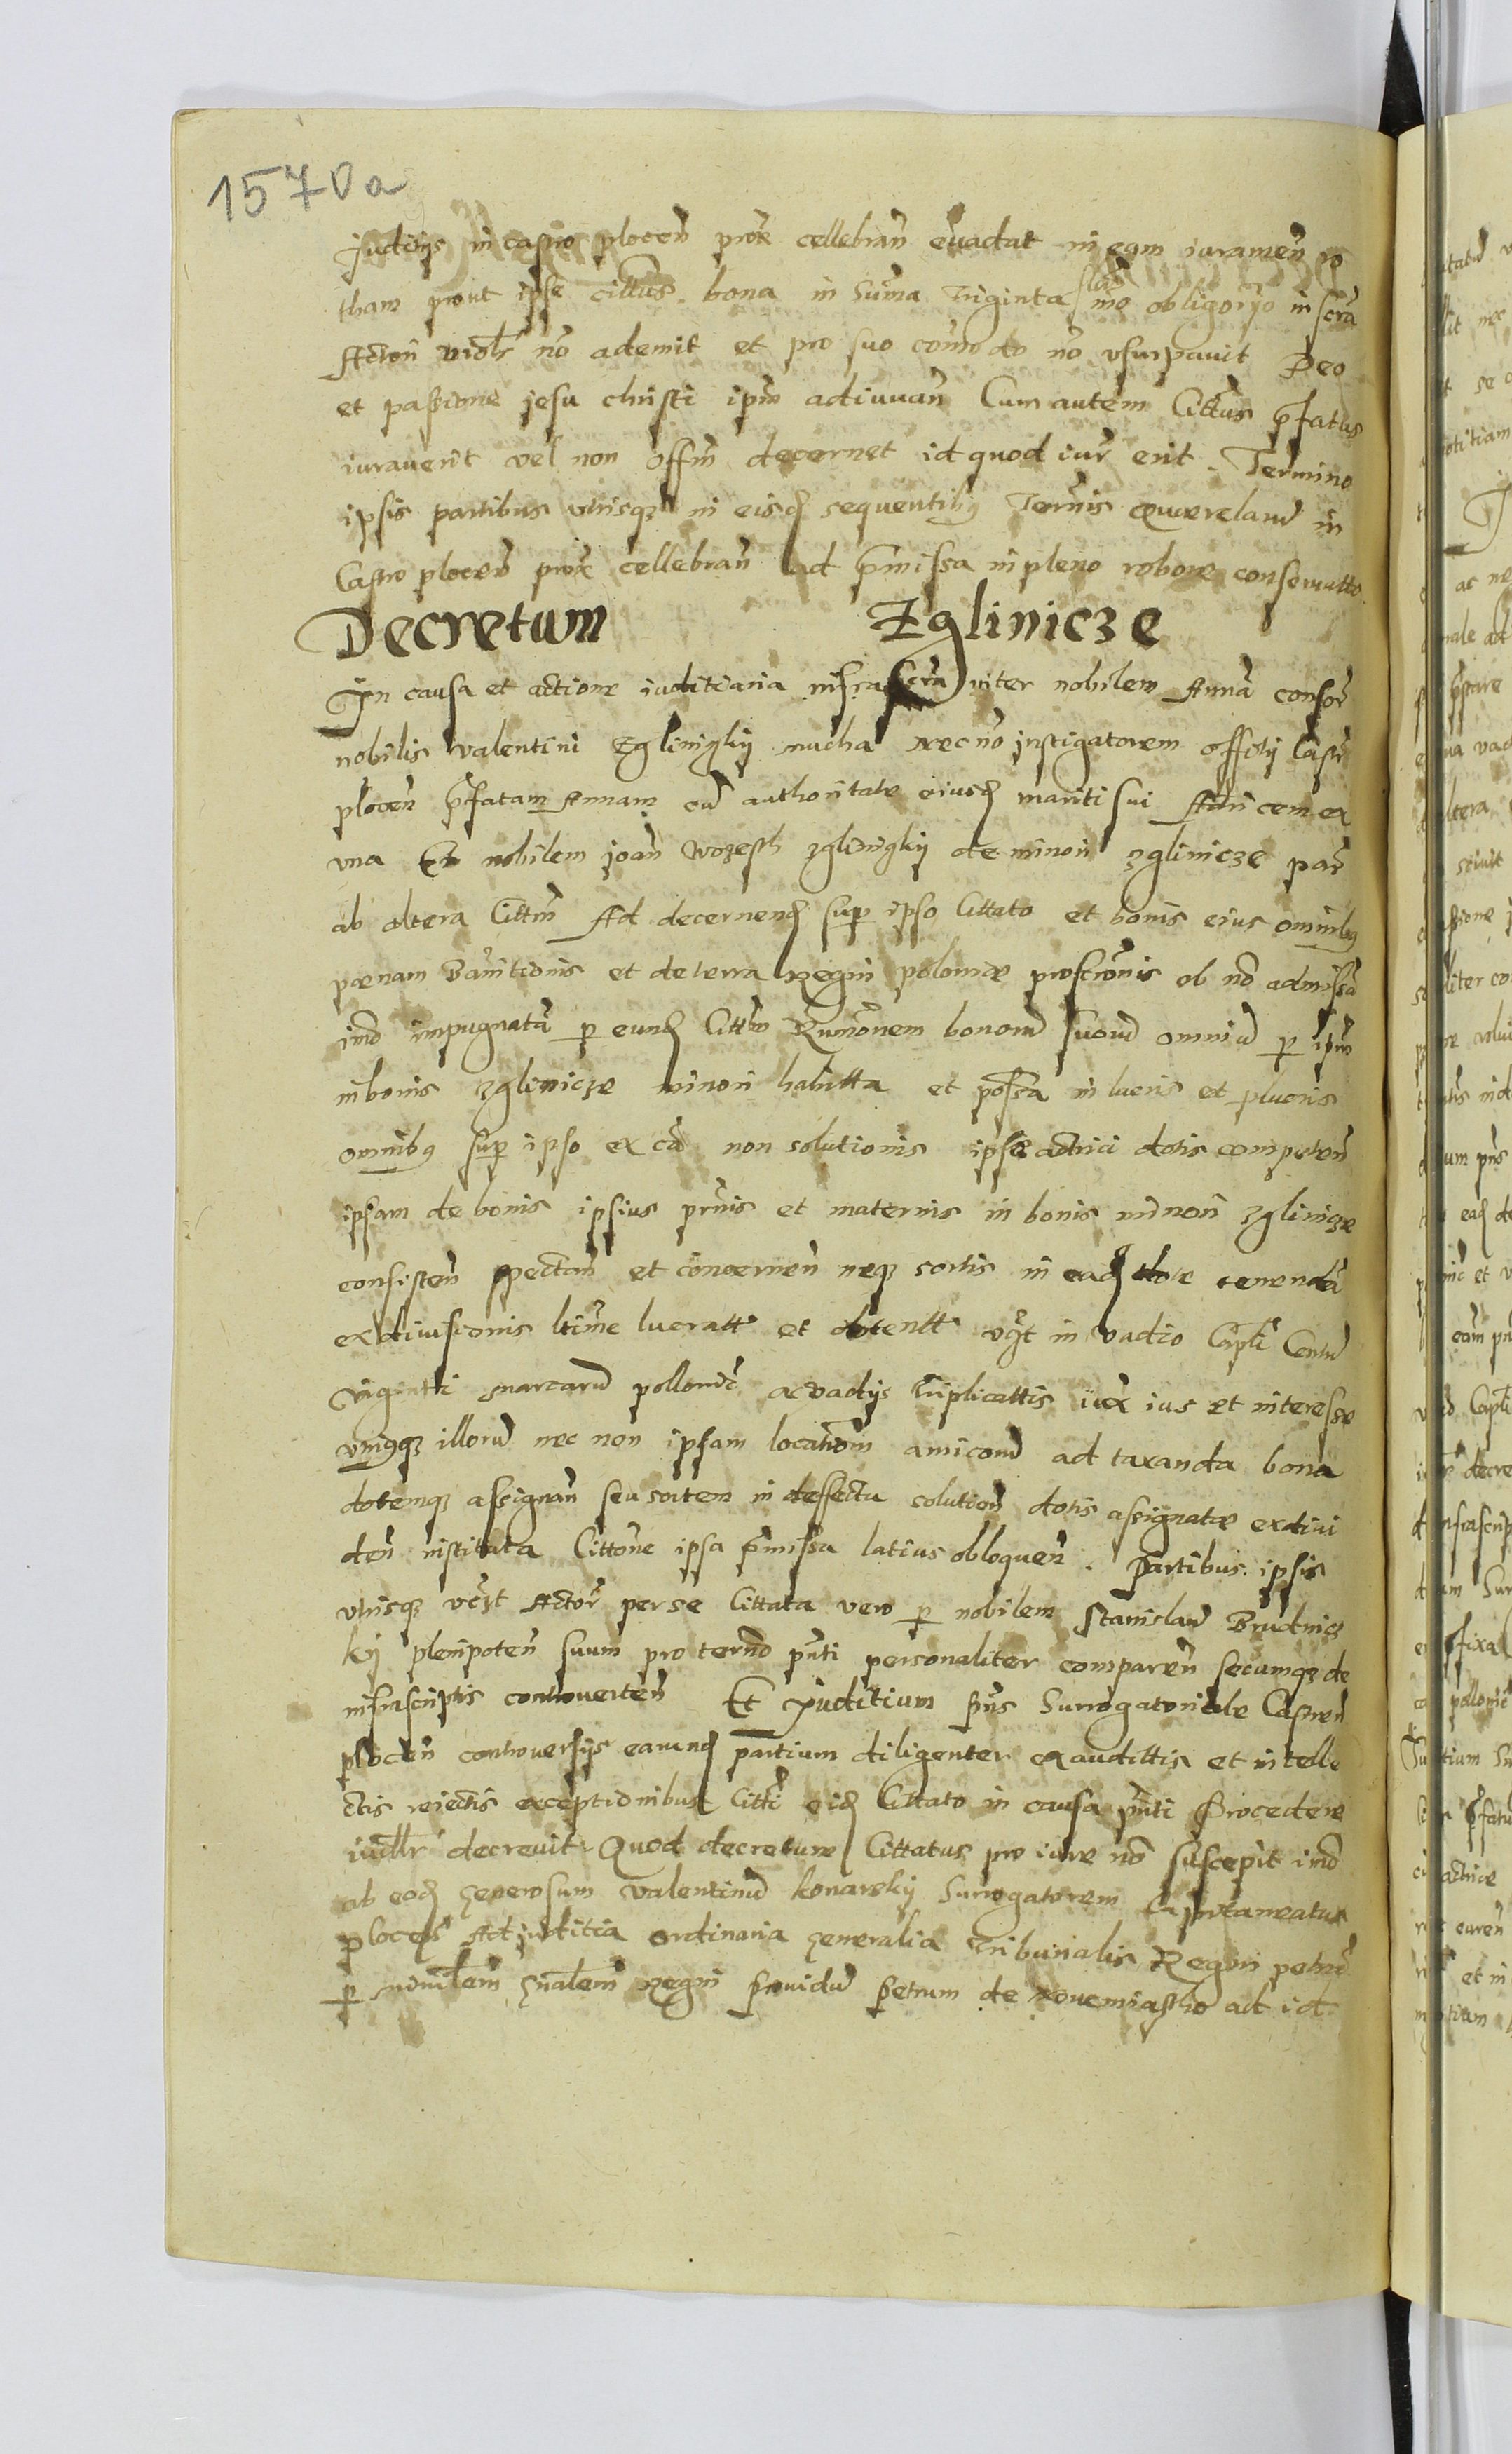 1570a
Juditijs in castro plocen̄ prox̄ cellebran̄ evadat in eam iuramen̄ ro
tham prout ipse cittus bona in sum̄a Triginta obligorio in scrā
Acton̄ violr̄ nō ademit et pro suo com̄odo nō usurpavit Deo
et passione jesu christi ipm̄ adiuvan̄ Cum autem Cittus p̄fatus
iuraverit vel non offm̄ decernet id quod iur̄ erit. Termino
ipsis partibus utrisqz in eisd̄ sequentibꝯ Ternis querelarū in
Castro plocen̄ prox̄ cellebran̄ ad p̄missa in pleno robore conservatto.
Decretum Zglinicze
In causa et actione iuditiaria infrascrā inter nobilem Annā consor̄
nobilis valentini Zglinigky mucha necnō instigatorem offitij Castr̄
plocen̄ p̄fatam Annam cū authoritate eiusd̄ mariti sui Actricem ex
una Et nobilem joan̄ Wozesth zglinigky de minori zglinicze par̄
ab altera Cittm̄ Ad decernend̄ sup ipso Cittato et bonis eius omnibꝯ
pœnam Ban̄itionis et de terra Regni poloniæ proscrōnis ob nō admissā
imo impugnatā p eund̄ Cittm̄ Rumōnem bonorū suorū omniū p ipm̄
in bonis zglinicze minori habitta et possa in lucris et plucris
omnibꝯ sup ipso ex cā non solutionis ipsæ actrici dotis competen̄
ipsam de bonis ipsius pr̄nis et maternis in bonis minori zglinicze
consisten̄ spectan̄ et concernen̄ neqz sortis in ead̄ dote tenendā
ex divisionis ltim̄e lucratt̄ et obtentt̄ vǧt in vadio Capli Centū
viginti marcarū pollonic̄ ac vadijs Triplicattis iux̄ ius et interesse
uniqꝯqz illorū nec non ipsam locatiōm amicorū ad taxanda bona
dotemqz assignan̄ seu sortem in deffectu solution̄ dotis assignatæ ex divi
den̄ instituta Cittōne ipsa p̄missa latius obloquen̄. Partibus ipsis
utrisqz vǯt Actor̄ per se Cittata vero p nobilem Stanislaū Brudnicz
ky plenipoten̄ suum pro ternō pn̄ti personaliter comparen̄ secumqz de
infrascriptis controverten̄ Et Juditium p̄ns Surrogatoriale Castren̄
plocen̄ controversijs earund̄ partium diligenter exaudittis et intelle
ctis reiectis exceptionibus Citti eid̄ Cittato in causa pn̄ti Procedere
iudlr̄ decrevit. Quod decretum Cittatus pro iure nō suscepit imō
ab eod̄ generosum valentinū konarsky Surrogatorem Capitaneatus
plocen̄ Ad juditia ordinaria generalia Tribunalis Regni petric̄
p gn̄alem̄ regni providū petrum de novemiastho ad id